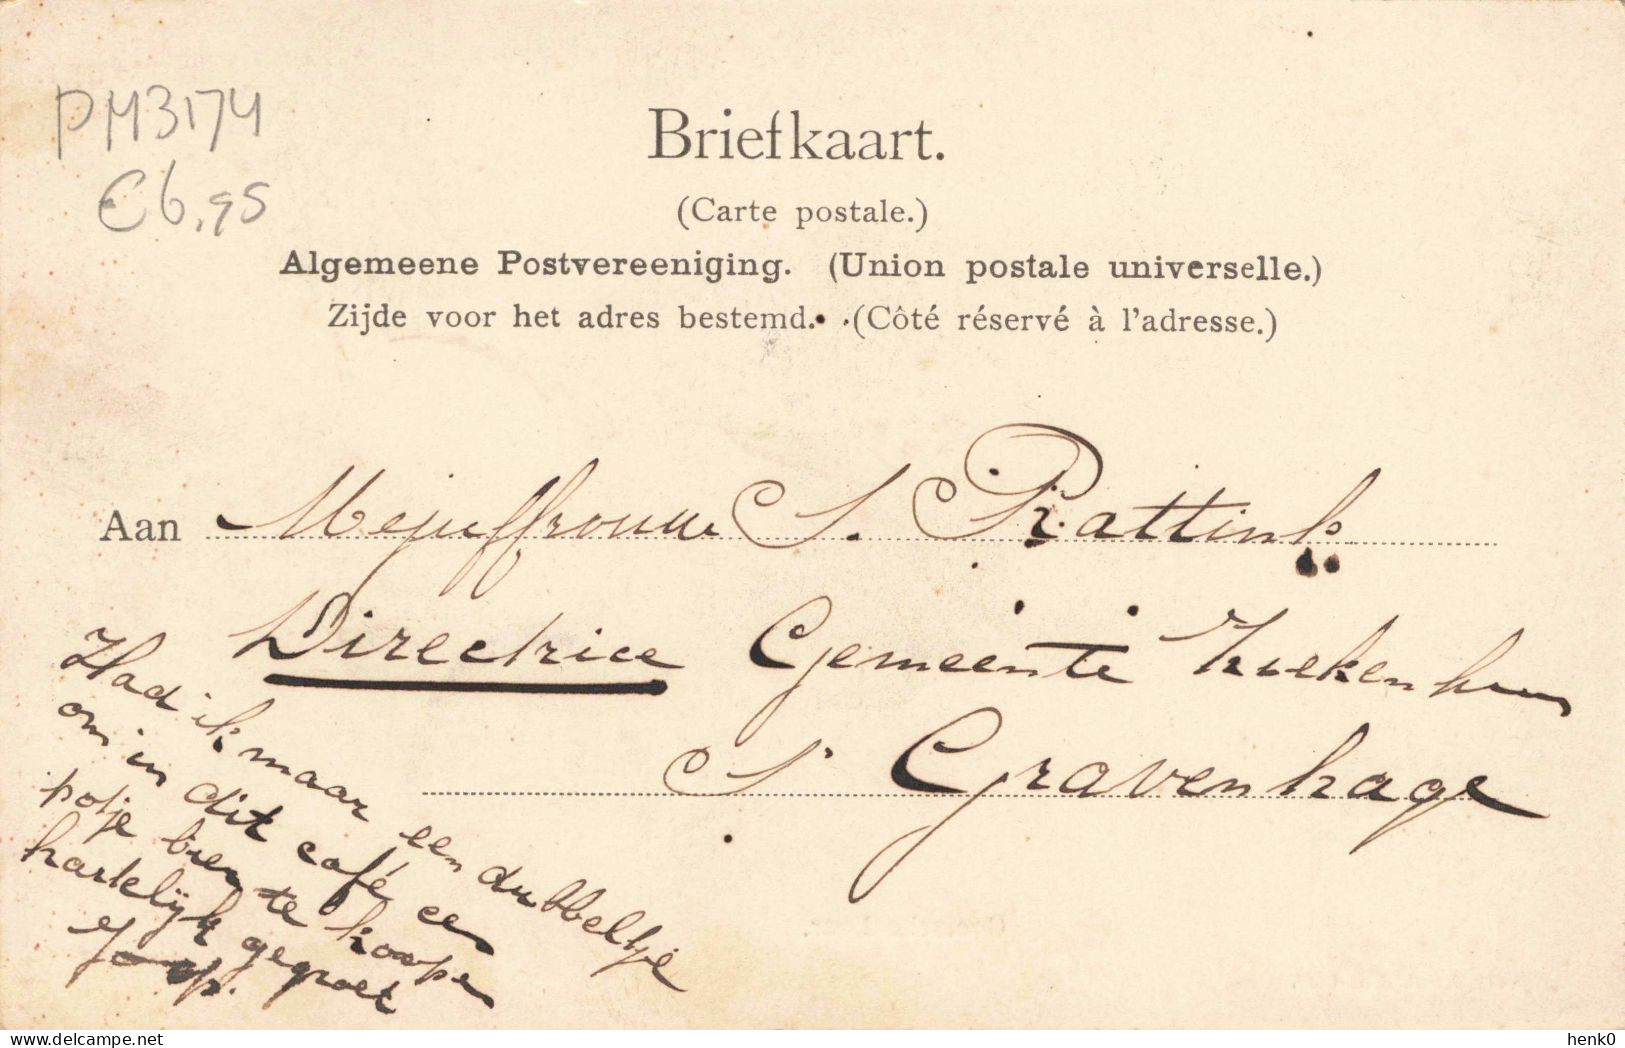 PM3174
€6,95
Briefkaart.
(Carte postale.)
Algemeene Postvereeniging. (Union postale universelle.)
Zijde voor het adres bestemd. (Côté réservé à l'adresse.)
Aan Mejuffrouw S. Rattink
Directrice Gemeente Ziekenhuis
S' Gravenhage
Had ik maar een dubbeltje
om in dit café een
potje bier te koope
hartelijk gegroet
Joop.
henk0